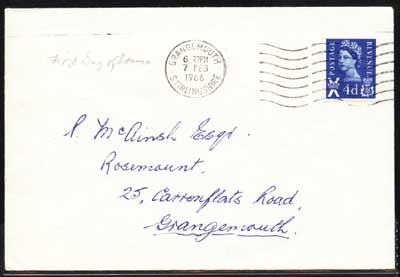 First Day of Issue
GRANGEMOUTH
6 PM
7 FEB
1966
STIRLINGSHIRE
POSTAGE
REVENUE
4d
P. McAinsh Esq.
Rosemount,
25, Carronflats Road,
Grangemouth.